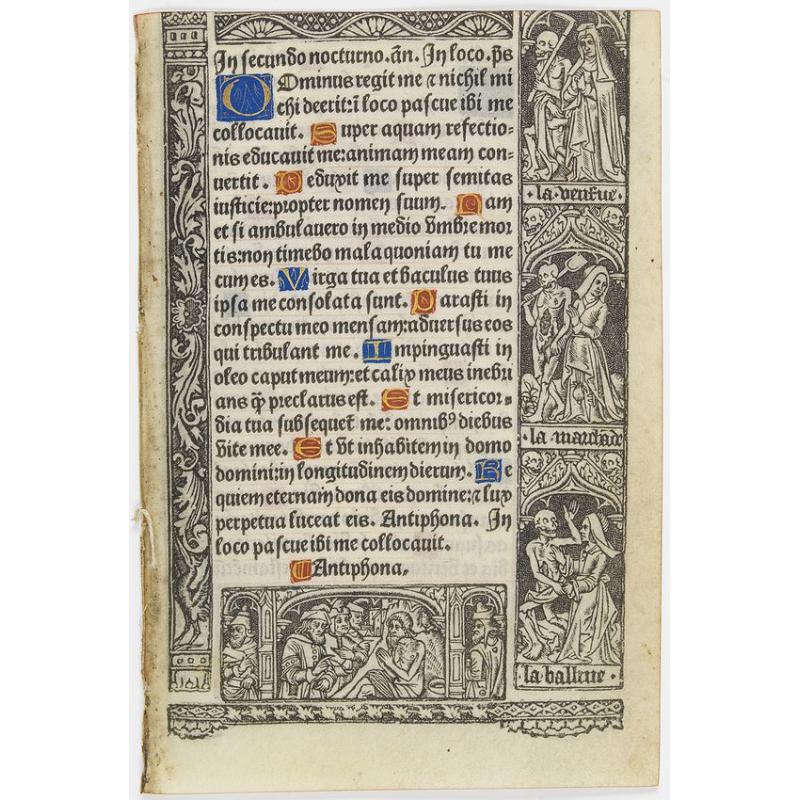 In secundo nocturno. añ. In loco. p̄s
Ominus regit me ⁊ nichil mi
chi deerit: ī loco pascue ibi me
collocauit. Super aquam refectio-
nis educauit me: animam meam con-
uertit. Deduxit me super semitas
iusticie: propter nomen suum. Nam
et si ambulauero in medio vmbre mor
tis: non timebo mala quoniam tu me
cum es. Virga tua et baculus tuus
ipsa me consolata sunt. Parasti in
conspectu meo mensam: aduersus eos
qui tribulant me. Impinguasti in
oleo caput meum: et calix meus inebri
ans q̄ preclarus est. Et misericor-
dia tua subsequet̄ me: omnibꝰ diebus
vite mee. Et vt inhabitem in domo
domini: in longitudinem dierum. Re
quiem eternam dona eis domine: ⁊ lux
perpetua luceat eis. Antiphona. In
loco pascue ibi me collocauit.
Antiphona.
la veufue.
la marchāde
la balliue.